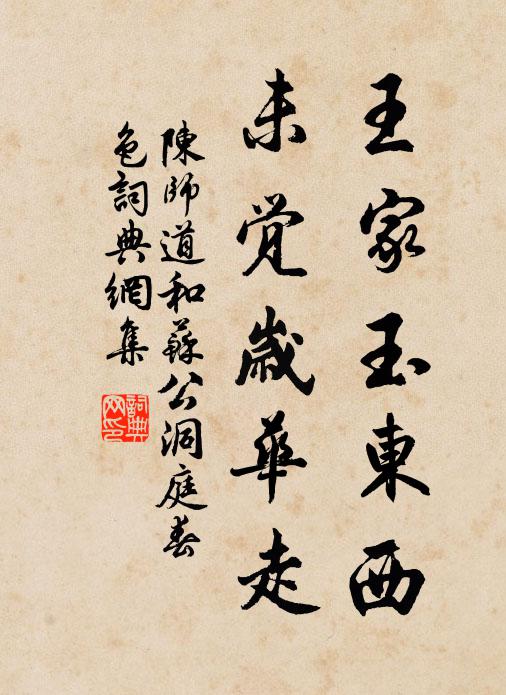 王家玉東西
未覺歲華走
陳師道和蘇公洞庭春
色詞典網集
詞典
网印